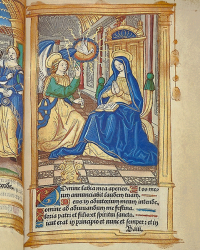 Domine labia mea aperies. Et os
meum annunciabit laudem tuam.
Deus in adiutorium meum intende.
Domine ad adiuvandum me festina.
Gloria patri et filio et spiritui sancto.
Sicut erat in principio et nunc et semper: et in